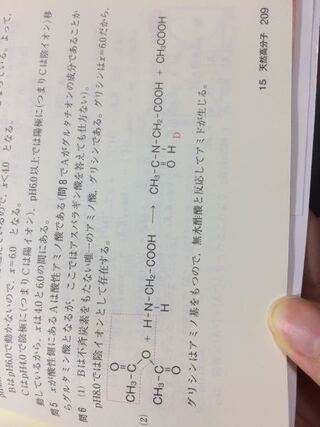 BはpH6.0で動かないので, x=6.0 となる。
CはpH4.0で陰極に(つまりCは陽イオン), pH6.0以上では陽極に(つまりCは陰イオン)移
動しているから, xは4.0と6.0の間にある。
問5 xが酸性側にあるAは酸性アミノ酸である(問8でAがグルタチオンの成分であることか
らグルタミン酸となるが, ここではアスパラギン酸を答えても仕方ない)。
問6 (1) Bは不斉炭素をもたない唯一のアミノ酸, グリシンである。グリシンはx=6.0だから,
pH8.0では陰イオンとして存在する。
(2)
CH₃-C
O
O
CH₃-C
O
+ H-N-CH₂-COOH
H
⟶ CH₃-C-N-CH₂-COOH + CH₃COOH
O H
D
グリシンはアミノ基をもつので, 無水酢酸と反応してアミドが生じる。
15 天然高分子 209